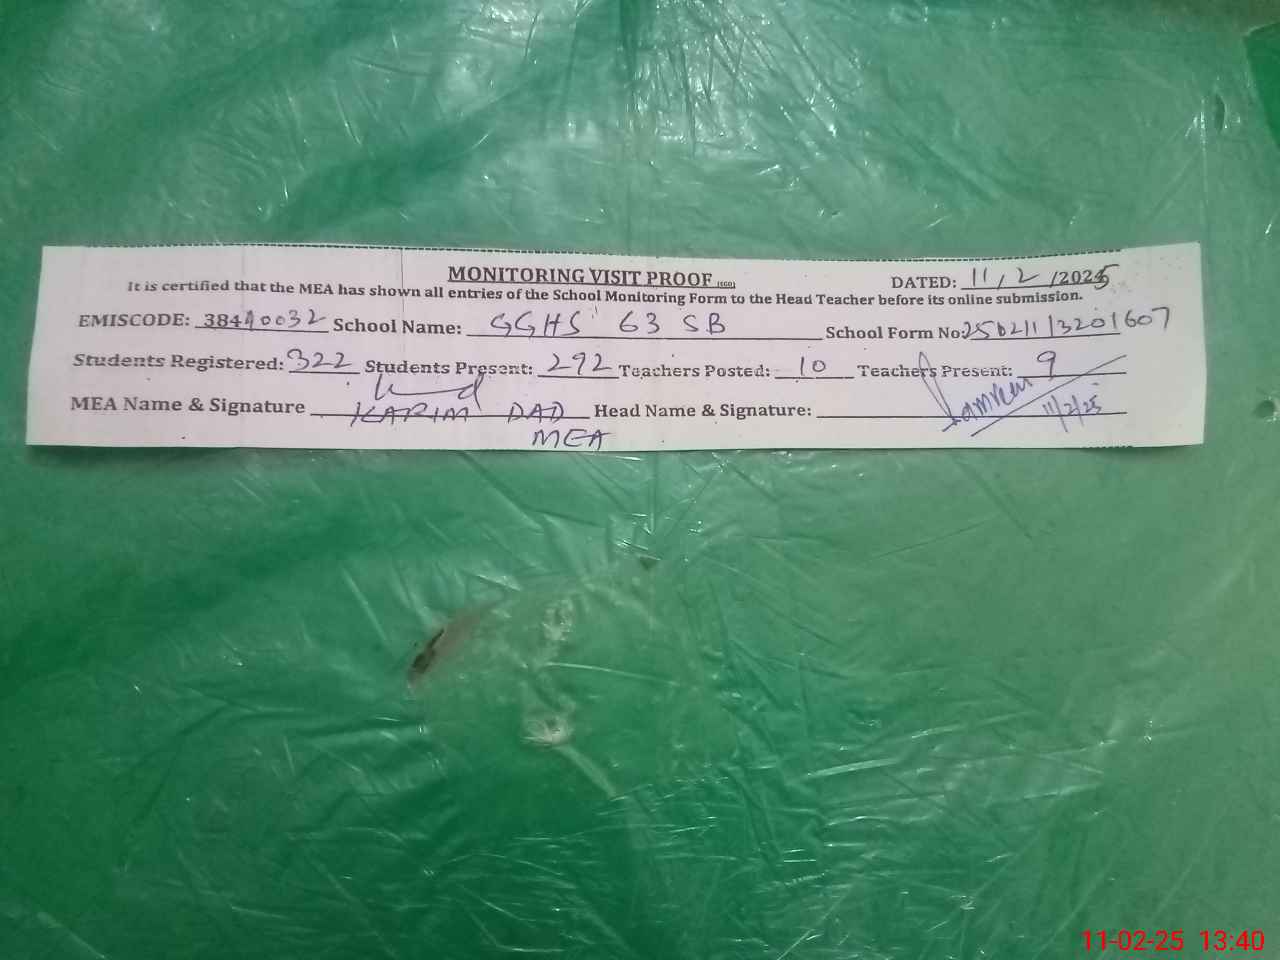 MONITORING VISIT PROOF
DATED: 11/2/2025
It is certified that the MEA has shown all entries of the School Monitoring Form to the Head Teacher before its online submission.
EMISCODE: 38440032 School Name: GGHS 63 SB School Form No: 25021113201607
Students Registered: 322 Students Present: 292 Teachers Posted: 10 Teachers Present: 9
MEA Name & Signature KARIM DAD Head Name & Signature: 11/2/25
MEA
11-02-25 13:40